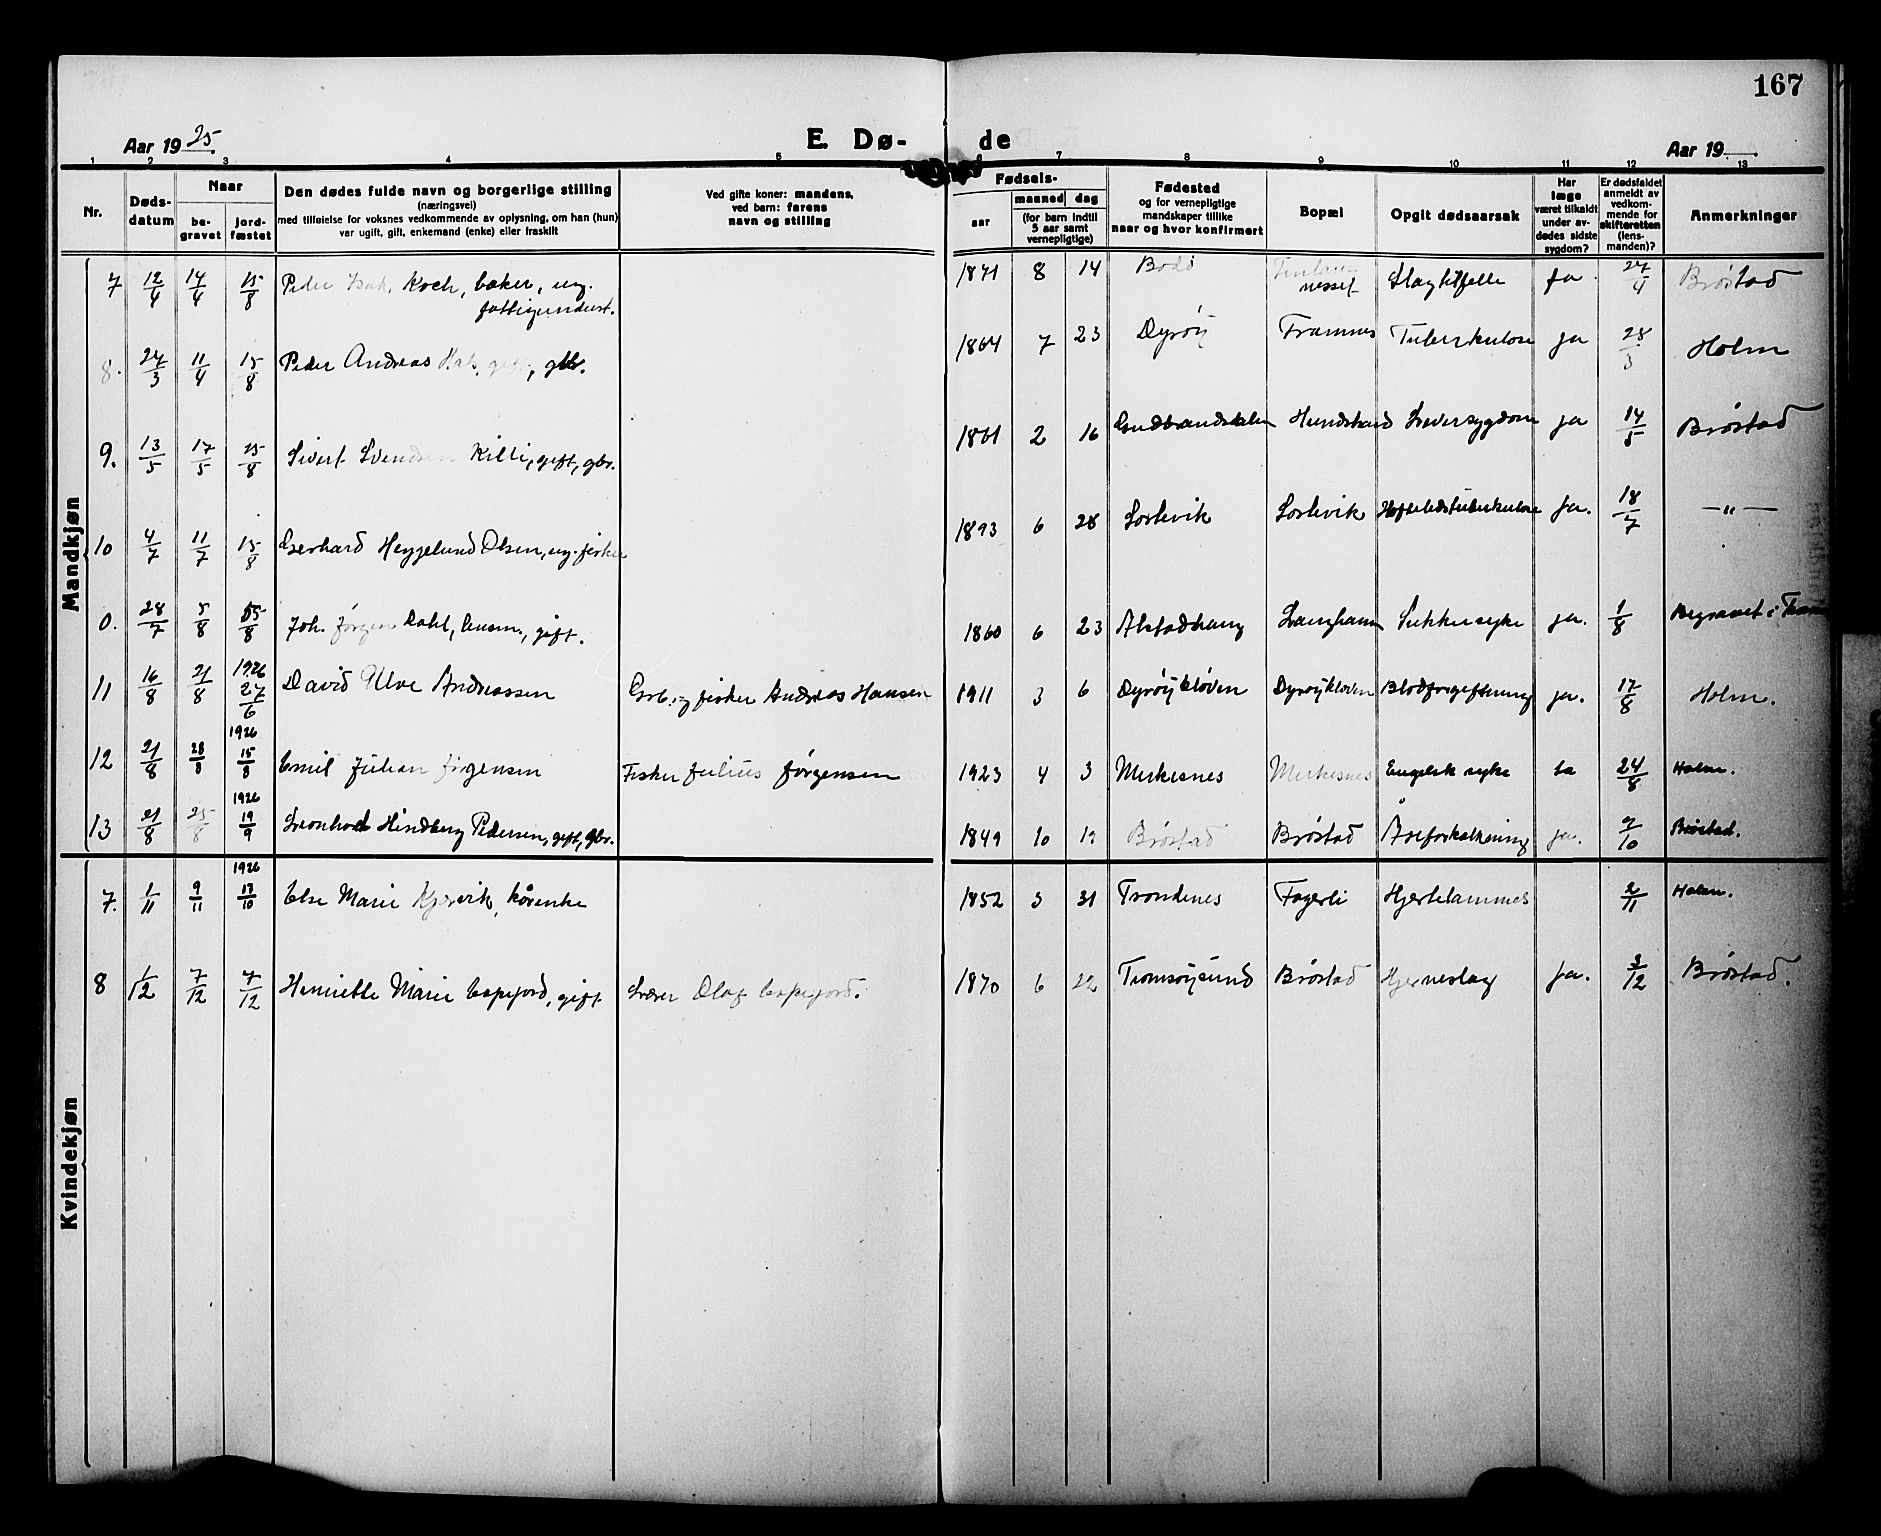 167
Aar 1925.
E. Dø-
de
Aar 19
1 2 3 4 5 6 7 8 9 10 11 12 13
Nr.
Døds-
datum
Naar
be-
gravet
jord-
fæstet
Den dødes fulde navn og borgerlige stilling
(næringsvei)
med tilføielse for voksnes vedkommende av oplysning, om han (hun)
var ugift, gift, enkemand (enke) eller fraskilt
Ved gifte koner: mandens,
ved barn: farens
navn og stilling
Fødsels-
aar
maaned dag
(for barn indtil
5 aar samt
vernepligtige)
Fødested
og for vernepligtige
mandskaper tillike
naar og hvor konfirmert
Bopæl
Opgit dødsaarsak
Har
læge
været tilkaldt
under av-
dødes sidste
sygdom?
Er dødsfaldet
anmeldt av
vedkom-
mende for
skifteretten
(lens-
manden)?
Anmerkninger
Mandkjøn
7 12/4 14/4 15/8 Peder Koch, baker, ug. 1871 8 14 Bodö nesset Slagtilfelle ja 27/4 Bröstad
fattigunderst.
8. 27/3 11/4 15/8 Peder Andreas gift, gbr. 1864 7 23 Dyröy Framnes Tuberkulose ja 28/3 Holm
9. 13/5 17/5 15/8 Sivert Svendsen Killi, gift, gbr. 1861 2 16 Gudbrandsdalen Hundstrand Leversygdom ja 14/5 Bröstad
10 4/7 11/7 15/8 Gerhard Heggelund Olsen, ug. fisker 1893 6 28 Sörlivik Sörlivik Hofteledstuberkulose ja. 18/7 —"—
0. 28/7 5/8 15/8 Joh. Jörgen Dahl, gift. 1860 6 23 Alstadhaug Langhamn Sukkersyke ja. 1/8 Begravet i
11 16/8 21/8 1926 27/6 David Ulve Andreassen Grb. og fisker Andreas Hansen 1911 3 6 Dyröykloven Dyröykloven Blodforgiftning ja. 17/8 Holm.
12 21/8 28/8 1926 15/8 Emil Julian Jörgensen Fisker Julius Jörgensen 1923 4 3 Merkesnes Merkesnes Engelsk syke ja 24/8 Holm.
13 21/8 25/8 1926 19/9 Leonhard Hindberg Pedersen, gift, gbr. 1849 10 Bröstad Bröstad Åreforkalkning ja. 2/10 Bröstad.
Kvindekjøn
7. 1/11 9/11 1926 17/10 Else Marie Kjervik, kårenke 1852 3 31 Trondenes Fagerli Hjertelammels 2/11 Holm.
8 1/12 7/12 7/12 Henriette Marie Espejord, gift Lærer Olaf Espejord. 1870 6 22 Tromsöysund Bröstad Hjerneslag ja. 3/12 Bröstad.